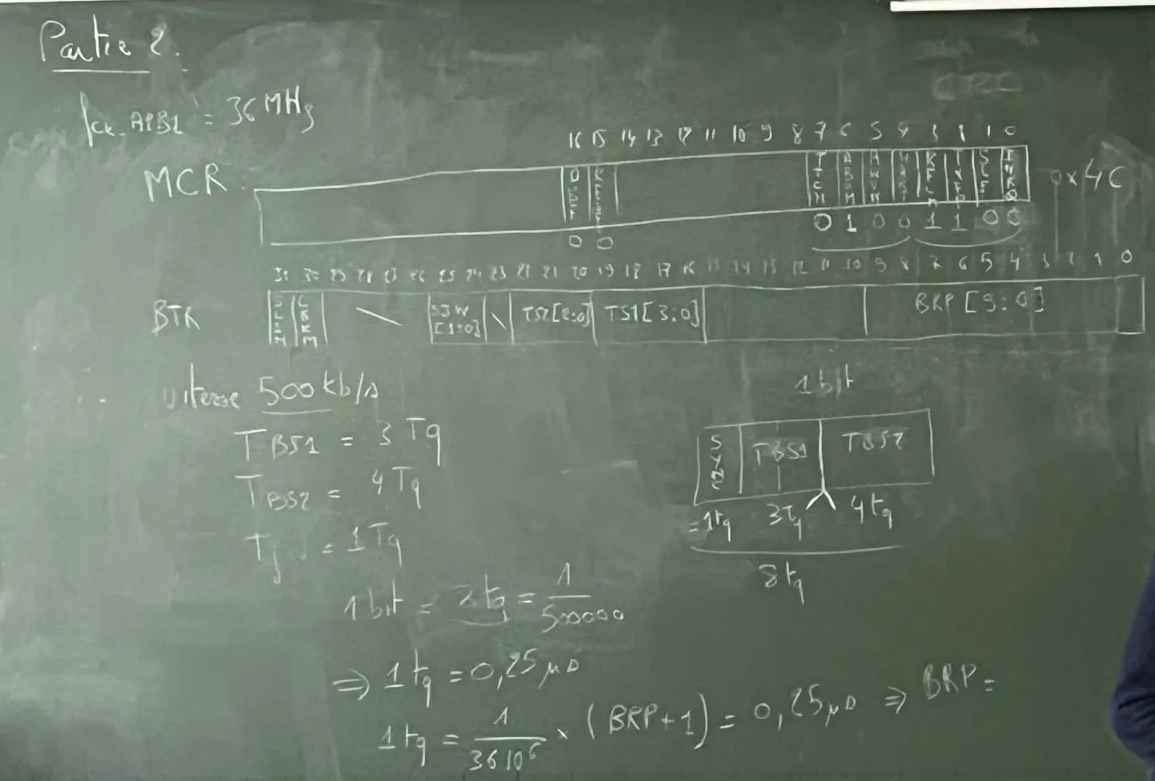 Partie 2.
CRC
fck_APB1 = 36 MHz
16 15 14 13 12 11 10 9 8 7 6 5 4 3 2 1 0
MCR DBF TTCM ABOM AWUM NART RFLM TXFP SLEEP INRQ 0x4C
0 0 0 1 0 0 1 1 0 0
31 30 29 28 27 26 25 24 23 22 21 20 19 18 17 16 15 14 13 12 11 10 9 8 7 6 5 4 3 2 1 0
BTR SILM LBKM SJW [1:0] TS2[2:0] TS1[3:0] BRP [9:0]
vitesse 500 kb/s
1 bit
TBS1 = 3 Tq
SYNC TBS1 TBS2
TBS2 = 4 Tq
=1tq 3tq 4tq
Tjw = 1 Tq
8tq
1 bit = 8tq = 1/500000
⇒ 1 tq = 0,25 µs
1 tq = 1/36 10⁶ × (BRP+1) = 0,25 µs ⇒ BRP =